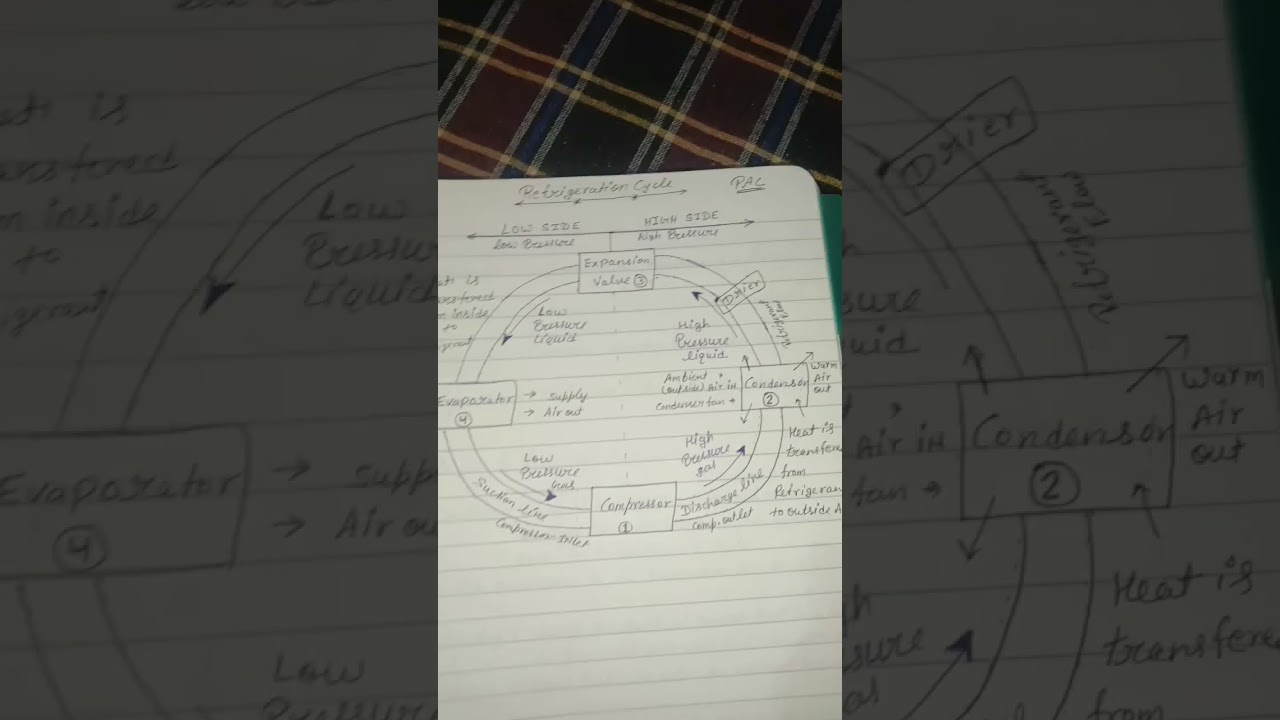 Refrigeration Cycle
PAC
LOW SIDE
HIGH SIDE
low Pressure
high Pressure
Expansion
Valve ③
Low
Pressure
Liquid
High
Pressure
liquid
Refrigerant
Flow
is
inside
to
Evaporator
④
→ Supply
→ Air out
Ambient
(outside) Air in
Condenser fan →
Condensor
②
Warm
Air
out
Low
Pressure
Gas
High
Pressure
gas
Heat is
transfere
from
Refrigeran
to outside A
Suction line
Compressor Inlet
Compressor
①
Discharge line
Comp. outlet